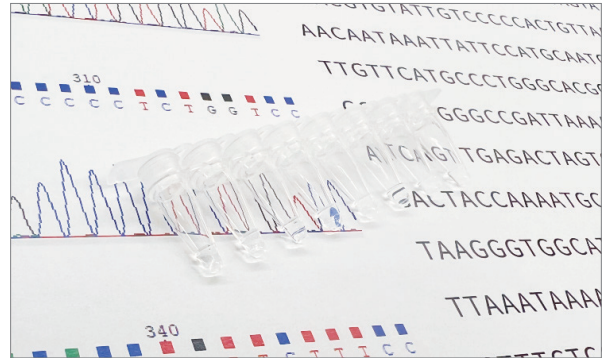 310
C C C C C T C T G G T C C
340
T C T T T C C
CGTGTATTGTCCCCCACTGTTA
AACAATAAATTATTCCATGCAATC
TTGTTCATGCCCTGGGCACG
GGGCCGATTAAA
TTGAGACTAGT
ACTACCAAAATGC
TAAGGGTGGCA
TTAAATAAAA